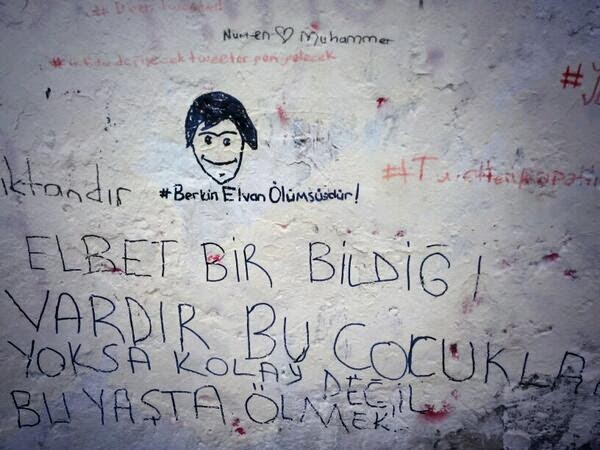 Nurten ♡ Muhammer
#
iktandır
#Berkin Elvan Ölümsüzdür!
ELBET BİR BİLDİĞİ
VARDIR BU ÇOCUKLA
YOKSA KOLAY DEĞİL
BU YAŞTA ÖLMEK..